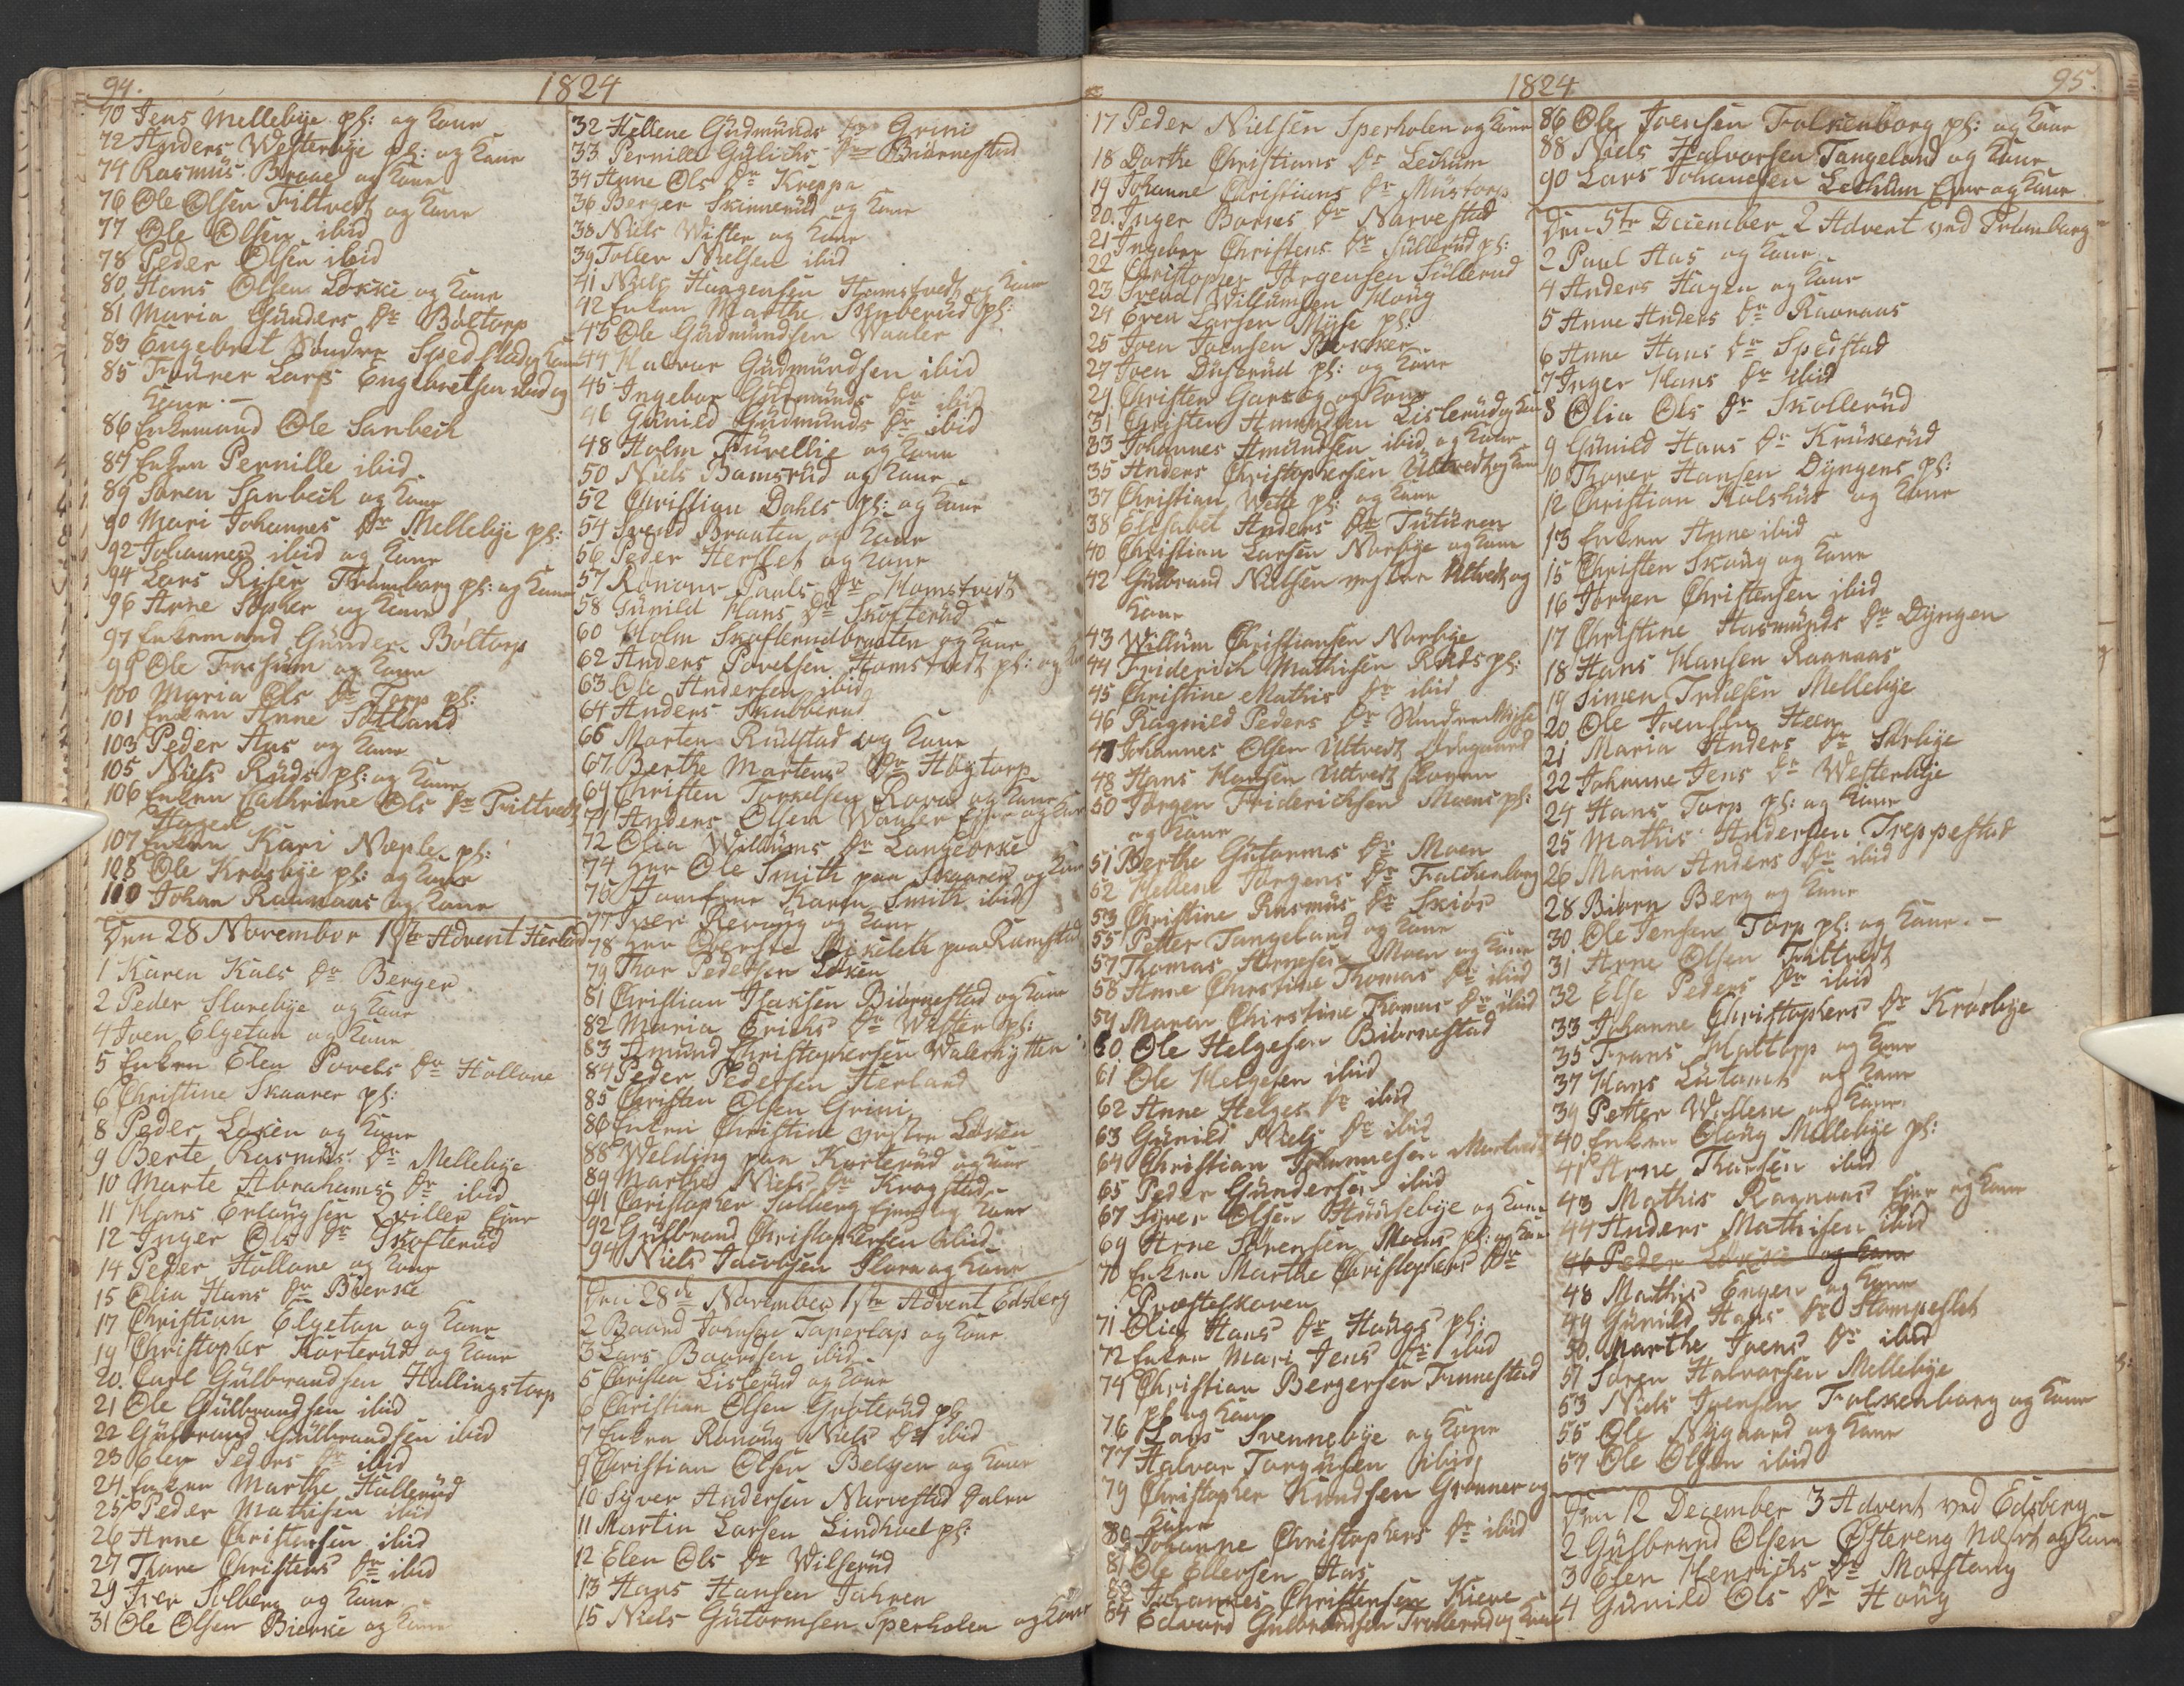 94.
1824
70 Jens Mellebÿe pl: og Kone
72 Anders Westerbÿe pl: og Kone
74 Rasmus Braae og Kone
76 Ole Olsen Trittvedt og Kone
77 Ole Olsen ibid
78 Peder Olsen ibid
80 Hans Olsen Løkke og Kone
81 Maria Gunders Dr Bøltorp
83 Engebret Søndre Spedstad og Kone
85 Fourer Lars Engebretsen ibid og
Kone. -
86 Enkemand Ole Sanbech
87 Enken Pernille ibid
89 Søren Sanbech og Kone
90 Mari Johannes Dr Mellebÿe pl:
92 Johannes ibid og Kone
94 Lars Riser Trømborg pl: og Kone
96 Arne Topker og Kone
97 Enkemand Gunder Bøltorp
99 Ole Fossum og Kone
100 Maria Ols Dr Torp pl:
101 Enken Anne Sotland
103 Peder Aas og Kone
105 Niels Ruds pl: og Kone
106 Enken Cathrine Ols Dr Trittvedt
Hagen
107 Enken Kari Næple pl:
108 Ole Krosbÿe pl: og Kone
110 Johan Raanaas og Kone
Den 28 November 1ste Advent Herland
1 Karen Kals Dr Berger
2 Peder Slorebÿe og Kone
4 Iven Elgetun og Kone
5 Enken Elen Povels Dr Hollone
6 Christine Skaarer pl:
8 Peder Løken og Kone
9 Berte Rasmus Dr Mellebÿe
10 Marte Abrahams Dr ibid
11 Hans Erlaugsen Qviller Ejer
12 Inger Ols Dr Skofterud
14 Peder Hollone og Kone
15 Olia Hans Dr Bierke
17 Christian Elgetun og Kone
19 Christopher Korterud og Kone
20. Carl Gulbrandsen Hallingstorp
21 Ole Gulbrandsen ibid
22 Gulbrand Gulbrandsen ibid
23 Elen Peders Dr ibid
24 Enken Marthe Hallerud
25 Peder Mathisen ibid
26 Arne Christensen ibid
27 Thore Christens Dr ibid
29 Iver Solberg og Kone
31 Ole Olsen Bierke og Kone
32 Hellene Gudmunds Dr Grini
33 Pernille Gulichs Dr Biørnestad
34 Anne Ols Dr Kreppa
36 Berger Skinnerud og Kone
38 Niels Wister og Kone
39 Toller Nielsen ibid
41 Niels Haagensen Homstvedt og Kone
42 Enken Marthe Binberud pl:
43 Ole Gudmundsen Waaler
44 Halvor Gudmundsen ibid
45 Ingebor Gudmunds Dr ibid
46 Gunild Gudmunds Dr ibid
48 Holm Furellie og Kone
50 Niels Bamsrud og Kone
52 Christian Dahls pl: og Kone
54 Svend Braaten og Kone
56 Peder Herslet og Kone
57 Ronoue Pauls Dr Homstvedt
58 Gunild Hans Dr Skofterud
60 Holm Skofterudbraaten og Kone
62 Anders Povelsen Homstvedt pl: og Kone
63 Ole Andersen ibid
64 Anders Skubberud
66 Morten Rulstad og Kone
67 Berthe Mortens Dr Høytorp
69 Christen Torkelsen Rova og Kone
71 Anders Olsen Waaler Ejer og Kone
72 Olia Willums Dr Langeorke
74 Herr Ole Smith paa Skaaren og Kone
75 Jomfrue Karen Smith ibid
77 Iver Revoug og Kone
78 Herr Oberste Bikeleth paa Ramstad
79 Thor Pedersen Løken
81 Christian Isaksen Biørnestad og Kone
82 Maria Erichs Dr Wister pl:
83 Amund Christophersen Walerhytten
84 Peder Pedersen Herland
85 Christen Olsen Grini
86 Enken Christine vestre Løken
88 Welding paa Korterud og Kone
89 Marthe Niels Dr Krogstad
91 Christopher Solberg Ejer og Kone
92 Gulbrand Christophersen ibid
94 Niels Jacobsen Slora og Kone
Den 28de November 1ste Advent Edsberg
2 Baard Joensen Taperlap og Kone
3 Lars Baardsen ibid
5 Christen Listerud og Kone
6 Christian Olsen Guoterud pl
7 Enken Ronoug Niels Dr ibid
9 Christian Olsen Belgen og Kone
10 Syver Andersen Narvestad Dalen
11 Martin Larsen Lindhoel pl:
12 Elen Ols Dr Wilserud
13 Hans Hansen Jahren
15 Niels Gutormsen Sperholen og Kone
1824
95.
17 Peder Nielsen Sperholen og Kone
18 Dorthe Christians Dr Lechum
19 Johanne Christians Dr Mustorp
20. Inger Bornes Dr Narvestad
21 Ingebor Christens Dr Sullerud pl:
22 Christopher Jørgensen Sullerud
23 Svend Willumsen Houg
24 Even Larsen Mÿse pl:
25 Iven Ivensen Bakker
27 Iven Duserud pl: og Kone
29 Christen Garseg og Kone
31 Christen Amundsen Listerud og Kone
33 Johannes Amundsen ibid og Kone
35 Anders Christophersen Ultvedt og Kone
37 Christian Wette pl: og Kone
38 Elisabet Anders Dr Tuturen
40 Christian Larsen Norbÿe og Kone
42 Gulbrand Nielsen vestre Ultvedt og
Kone
43 Willum Christiansen Norbÿe
44 Friderich Mathisen Ruds pl:
45 Christine Mathis Dr ibid
46 Ragnild Peders Dr Søndre Mÿse
47 Johannes Olsen Ultvedt Ødegaard
48 Hans Hansen Ultvedt skoven
50 Jørgen Friderichsen Moens pl:
og Kone
51 Berthe Gutorms Dr Moen
52 Hellene Jørgens Dr Falchenborg
53 Christine Rasmus Dr Skiør
55 Petter Tangeland og Kone
57 Thomas Arnesen Moen og Kone
58 Anne Christine Thomas Dr ibid
59 Maren Christine Thomas Dr ibid
60 Ole Helgesen Biørnestad
61 Ole Helgesen ibid
62 Anne Helges Dr ibid
63 Gunild Niels Dr ibid
64 Christian Johannesen
65 Peder Gundersen ibid
67 Syver Olsen Huusebÿe og Kone
69 Arne Sørensen Moens pl: og Kone
70 Enken Marthe Christophers Dr
Præsteskoven
71 Olia Hans Dr Hougs pl:
72 Enken Mari Jens Dr ibid
74 Christian Bergersen Finnestad
pl og Kone
76 Lars Svennebÿe og Kone
77 Halvor Torgusen ibid
79 Christopher Knudsen Grønner og
Kone
80 Johanne Christophers Dr ibid
81 Ole Ellersen Aas
82 Johannes Christensen Kiene
84 Edvard Gulbrandsen Trollerud og Kone
86 Ole Ivensen Falkenborg pl: og Kone
88 Niels Halvorsen Tangeland og Kone
90 Lars Johannesen Lechum Ejer og Kone
Den 5te December 2 Advent ved Trømborg
2 Paul Aas og Kone
4 Anders Hagen og Kone
5 Anne Anders Dr Raanaas
6 Anne Hans Dr Spedstad
7 Inger Hans Dr ibid
8 Olia Ols Dr Skollerud
9 Gunild Hans Dr Krukerud
10 Thorer Hansen Dÿngens pl:
12 Christian Kolshus og Kone
13 Enken Anne ibid
15 Christen Skoug og Kone
16 Jørgen Christensen ibid
17 Christine Asmunds Dr Dÿngen
18 Hans Hansen Raanaas
19 Simen Trulsen Mellebÿe
20 Ole Ivensen Heen
21 Maria Anders Dr Sørbÿe
22 Johanne Jens Dr Westerbÿe
24 Hans Torp pl: og Kone
25 Mathis Andersen Treppestad
26 Maria Anders Dr ibid
28 Biørn Berg og Kone
30 Ole Jensen Torp pl: og Kone. -
31 Arne Olsen Trittvedt
32 Else Peders Dr ibid
33 Johanne Christophers Dr Krosbÿe
35 Frans Mattorp og Kone
37 Hans Lutomt og Kone
39 Petter Willene og Kone
40 Enken Oloug Mellebÿe pl:
41 Arne Thorsen ibid
43 Mathis Raanaas Ejer og Kone
44 Anders Mathisen ibid
46 Peder Løkke og Kone
48 Mathis Engen og Kone
49 Gunild Hans Dr Stompeslet
50. Marthe Ivens Dr ibid
51 Søren Halvorsen Mellebÿe
53 Niels Ivensen Falskenborg og Kone
55 Ole Nÿgaard og Kone
57 Ole Olsen ibid
Den 12 December 3 Advent ved Edsberg
2 Gulbrand Olsen Østereng Næset og Kone
3 Elen Henrichs Dr Morstang
4 Gunild Ols Dr Houg